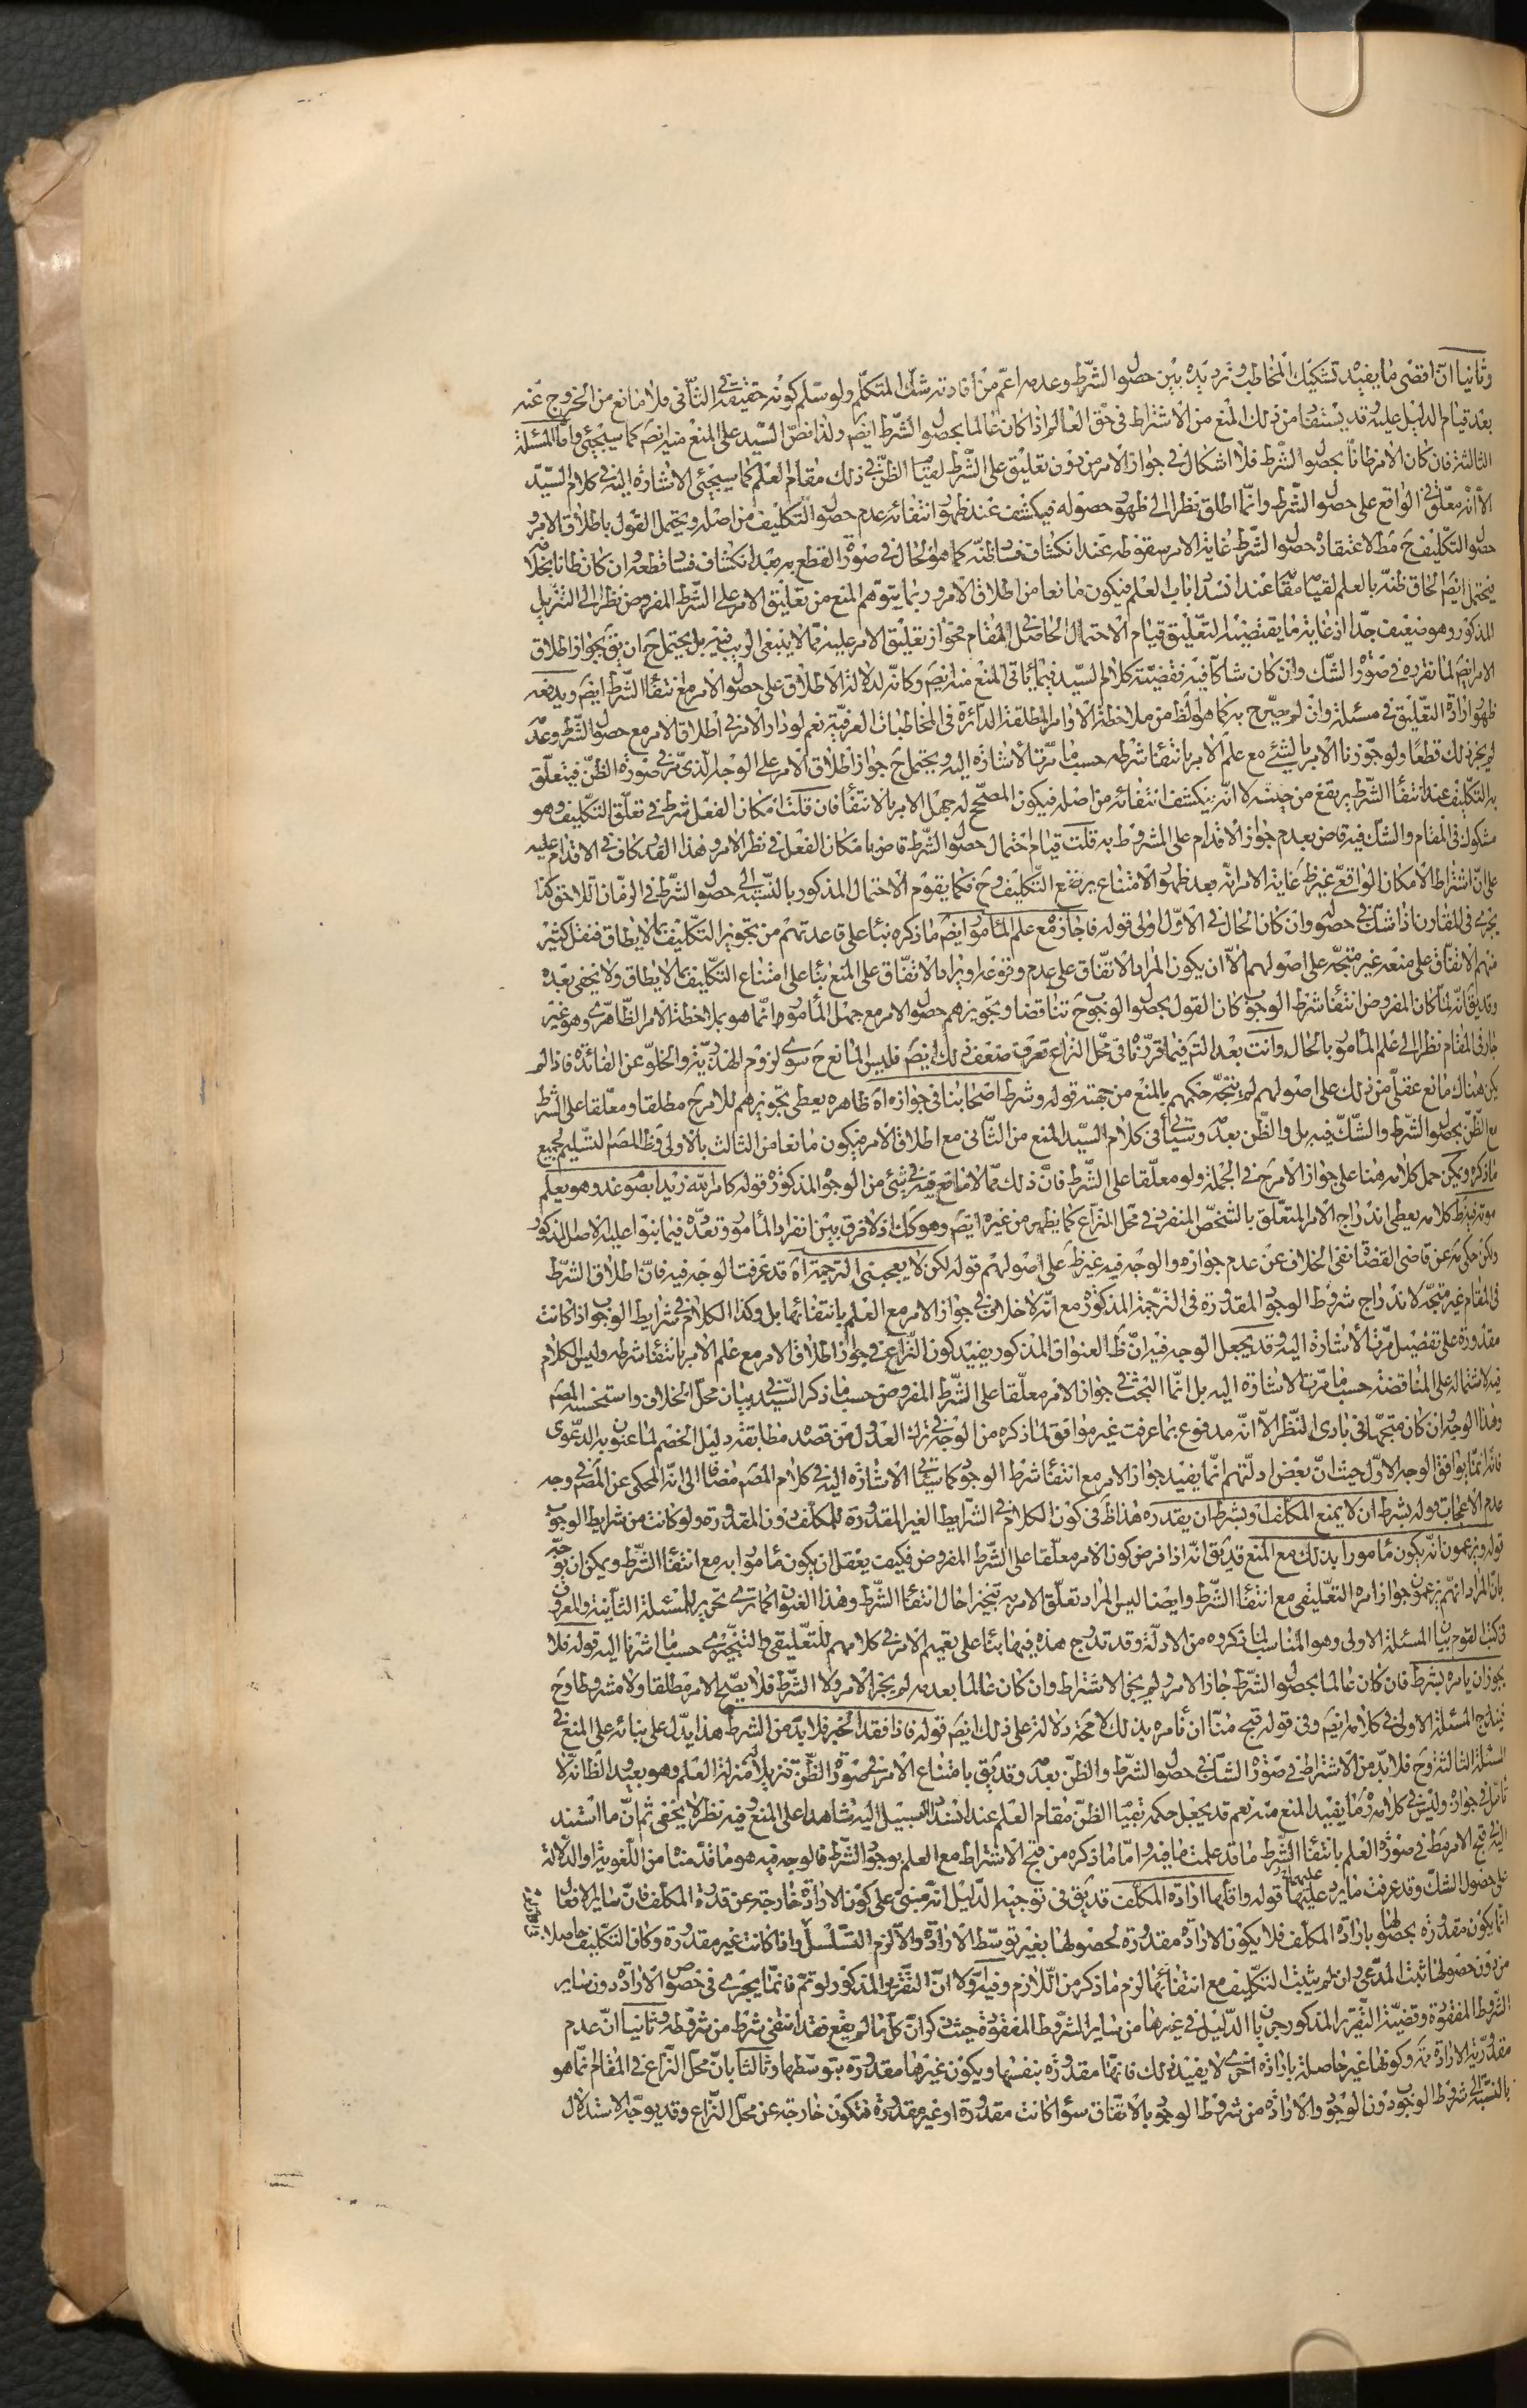 وثانيا انّ اقضى ما يفيد تشكيك المخاطب وترديده بين حصول الشّرط وعدمه اعمّ من افادته شكّ المتكلّم ولو سلم كونه حقيقة في الثّاني فلا مانع من الخروج عنه
بعد قيام الدليل عليه وقد يستفا من ذلك المنع من الاشتراط في حقّ العالم اذا كان عالما بحصول الشّرط ايضَ ولذا نصّ السّيد على المنع منه ايضَ كما سيجئ وامّا المسئلة
الثالثة فان كان الامر ظانّا بحصول الشّرط فلا اشكال في جواز الامر من دون تعليق على الشّرط لقيام الظنّ في ذلك مقام العلم كما سيجئ الاشارة اليه في كلام السّيّد
الّا انّه معلّق في الواقع على حصول الشّرط وانّما اطلق نظرا الى ظهور حصوله فيكشف عند ظهور انتفائه عدم حصول التّكليف من اصله ويحتمل القول باطلاق الامر و
حصول التّكليف حَ مطلا اعتقاد حصول الشّرط غاية الامر سقوطه عند انكشاف فسا ظنّه كما هو الحال في صورة القطع به بعد انكشاف فسا قطعه وان كان ظانّا بخلافه
فيحتمل ايضَ الحاق ظنّه بالعلم لقيامه مقامه عند انسداد باب العلم فيكون مانعا من اطلاق الامر وربما يتوهّم المنع من تعليق الامر على الشّرط المفروض نظرا الى التنزيل
المذكور وهو ضعيف جدّا اذ غاية ما يقتضيه التّعليق قيام الاحتمال الحاصل في المقام فجواز تعليق الامر عليه ممّا لا ينبغي الريب فيه بل يحتمل حَ ان يقَ بجواز اطلاق
الامر ايضَ لما نقرّره في صورة الشّك وان كان شاكّا فيه فقضيّة كلام السّيد فيما يأتي المنع منه ايضَ وكانّه لدلالة الاطلاق على حصول الامر مع انتفا الشّرط ايضَ ويدفعه
ظهور ارادة التّعليق في مسئلة وان لم يصّرح به كما هو الظ من ملاحظة الاوامر المطلقة الدائرة في المخاطبات العرفيّة نعم لو دار الامر في اطلاق الامر مع حصول الشّرط وعدمه
لم يجز ذلك قطعا ولو جوّزنا الامر بالشّئ مع علم الامر بانتفا شرطه حسب ما مرّت الاشارة اليه ويحتمل حَ جواز اطلاق الامر على الوجه الّذي مرّ في صورة الظنّ فيتعلّق
به التكليف عند انتفا الشّرط يرتفع من حينه لا انّه ينكشف انتفائه من اصله فيكون المصحّح له جهل الامر بالانتفا فان قلت امكان الفعل شرط في تعلّق التّكليف وهو
مشكوك في المقام والشك فيه قاض بعدم جواز الاقدام على المشروط به قلت قيام احتمال حصول الشّرط قاض بامكان الفعل في نظر الامر وهذا القدر كاف في الاقدام عليه
على انّ اشتراط الامكان الواقعي غير ظَ غاية الامر انّه بعد ظهور الامتناع يرتفع التّكليف وحَ فكما يقوم الاحتمال المذكور بالنّسبة الى حصول الشّرط في الزّمان اللاحق كذا
يجري في المقارن اذا شكّ في حصوله وان كان الحال في الاوّل اولى قوله فاجاز مع علم المأمور ايضَ ما ذكره بناء على قاعدتهم من تجويز التّكليف بما لا يطاق فنقل كثير
منهم الاتّفاق على منعه غير متجّه على اصولهم الّا ان يكون المراد الاتّفاق على عدم وقوعه او يراد الاتّفاق على المنع بناء على امتناع التّكليف بما لا يطاق ولا يخفى بعده
وقد يقَ انّه لمّا كان المفروض انتفا شرط الوجوب كان القول بحصول الوجوب حَ تناقضا وتجويزهم حصول الامر مع جهل المأمور انّما هو بملاحظة الامر الظّاهري وهو غير
جار في المقام نظرا الى علم المأمور بالحال وانت بعد التّامّل فيما قرّرناه في محلّ النزاع تعرف ضعف ذلك ايضَ فليس المانع حَ سوى لزوم الهذريّة والخلوّ عن الفائدة فاذا لم
يكن هناك مانع عقليّ من ذلك على اصولهم لم يتجّه حكمهم بالمنع من جهته قوله وشرط اصحابنا في جوازه اه ظاهره يعطي تجويزهم للامر حَ مطلقا ومعلّقا على الشّرط
مع الظّنّ بحصول الشّرط والشّكّ فيه بل والظّن بعدمه وسيأتي في كلام السّيد المنع من الثّاني مع اطلاق الامر فيكون مانعا من الثالث بالاولى وظ المصَ التسليم لجميع
ما ذكره ويمكن حمل كلامه هنا على جواز الامر حَ في الجملة ولو معلّقا على الشّرط فانّ ذلك ممّا لا مانع فيه في شئ من الوجوه المذكورة قوله كامر اللّه زيدا بصوم غد وهو يعلم
موته فيه ظ كلامه يعطي اندراج الامر المتعلّق بالشخص المنفرد في محل النزاع كما يظهر من غيره ايضَ وهو كك اذ لا فرق بين انفراد المأمور وتعدّده فيما بنوا عليه الاصل المذكور
ولكن حكي عن قاضي القضاة نفي الخلاف عن عدم جوازه والوجه فيه غير ظَ على اصولهم قوله لكن لا يعجبني التّرجمة اه قد عرفت الوجه فيه فانّ اطلاق الشّرط
في المقام غير متجّه لاندراج شروط الوجود المقدورة في التّرجمة المذكورة مع انّه لا خلاف في جواز الامر مع العلم بانتفائها بل وكذا الكلام في شرايط الوجوب اذا كانت
مقدورة على تفصيل مرّت الاشارة اليه وقد يجعل الوجه فيه انّ ظَ العنوان المذكور يفيد كون النّزاع في جواز اطلاق الامر مع علم الامر بانتفا شرطه وليس الكلام
فيه لاشتماله على المناقضة حسب ما مرّت الاشارة اليه بل انّما البحث في جواز الامر معلّقا على الشّرط المفروض حسب ما ذكره السّيد في بيان محلّ الخلاف واستحسنه المصَ
وهذا الوجه وان كان متجّها في بادي النّظر الّا انّه مدفوع بما عرفت غير موافق لما ذكره من الوجه في ترك العدول من قصد مطابقة دليل الخصم لما عنون به الدعوى
فانّه انّما يوافق الوجه الاوّل حيث انّ بعض ادلّتهم انّما يفيد جواز الامر مع انتفا شرط الوجوب كما سيأتي الاشارة اليه في كلام المصَ مضافا الى انّه المحكي عن المصَ في وجه
عدم الاعجاب قوله بشرط ان لا يمنع المكلّف او بشرط ان يقدره هذا ظ في كون الكلام في الشّرايط الغير المقدورة للمكلّف دون المقدورة ولو كانت من شرايط الوجوب
قوله ويزعمون انّه يكون مأمورا بذلك مع المنع قد يقَ انّه اذا فرض كون الامر معلّقا على الشّرط المفروض فكيف يعقل ان يكون مأمورا به مع انتفا الشّرط ويمكن ان يوجّه
بانّ المراد انّهم يزعمون جواز امره التعليقي مع انتفا الشّرط وايضا ليس المراد تعلّق الامر به تنجيزا حال انتفا الشّرط وهذا العنوان كما ترى تحرير للمسئلة الثّانية والمعروف
في كتب القوم بيان المسئلة الاولى وهو المناسب لما نكرّره من الادلّة وقد تدرج هذه فيها بناء على تعميم الامر في كلامهم للتّعليقي والتّنجّيزي حسب ما اشرنا اليه قوله فلا
يجوز ان يامره بشرط فان كان عالما بحصول الشّرط جاز الامر ولم يجز الاشتراط وان كان عالما بعدمه لم يجز الامر ولا الشّرط فلا يصّح الامر مطلقا ولا مشروطا وحَ
فيندرج المسئلة الاولى في كلامه ايضَ وفي قوله قبح منّا ان نأمره بذلك لا محة دلالة على ذلك ايضَ قوله فاذا فقد الخبر فلا بدّ من الشرط هذا يدّل على بنائه على المنع في
المسئلة الثالثة وحَ فلا بدّ من الاشتراط في صورة الشك في حصول الشّرط والظّن بعدمه وقد يقَ بامتناع الامر في صورة الظّنّ تنزيلا له منزلة العلم وهو بعيد الظ انّه لا
تأمّل في جوازه وليس في كلامه رَه ما يفيد المنع منه نعم قد يجعل حكمه بقيام الظنّ مقام العلم عند انسداد السبيل اليه شاهدا على المنع وفيه نظر لا يخفى ثم انّ ما استند
اليه في قبح الامر مط في صورة العلم بانتفا الشّرط ما قد علمت ما فيه وامّا ما ذكره من قبح الاشتراط مع العلم بوجود الشّرط فالوجه فيه هو ما قدّمنا من اللّغويّة والدّلالة
على حصول الشكّ وقد عرفت ما يرد عليهما قوله واقلّها ارادة المكلّف قد يقَ في توجيه الدّليل انّه مبنيّ على كون الارادة خارجة عن قدرة المكلّف فانّ ساير الافعال
انّما يكون مقدورة بحصولها بارادة المكلّف فلا يكون الارادة مقدورة لحصولها بغير توسّط الارادة والّا لزم التّسلسل واذا كانت غير مقدورة وكان التّكليف حاصلا
من دون حصولها ثبت المدّعى وان لم يثبت التكليف مع انتفائها لزم ما ذكر من اللّازم وفيه اوّلا انّ التّقرير المذكور لو تمّ فانّما يجري في خصوص الارادة دون ساير
الشّروط المفقودة وقضيّة التّقرير المذكور جريان الدّليل في غيرها من ساير الشّروط المفقودة حيث ذكر انّ كلّ ما لم يقع فقد انتفى شرط من شروطه وثانيا انّ عدم
مقدوريّة الارادة وكونها غير حاصلة بارادة اخرى لا يفيد ذلك فانّها مقدورة بنفسها ويكون غيرها مقدورة بتوسّطها وثالثا بانّ محلّ النّزاع في المقام انّما هو
بالنّسبة الى شرط الوجوب دون الوجود والارادة من شروط الوجود بالاتّفاق سواء كانت مقدورة او غير مقدورة فتكون خارجة عن محلّ النّزاع وقد يوجّه الاستدلال